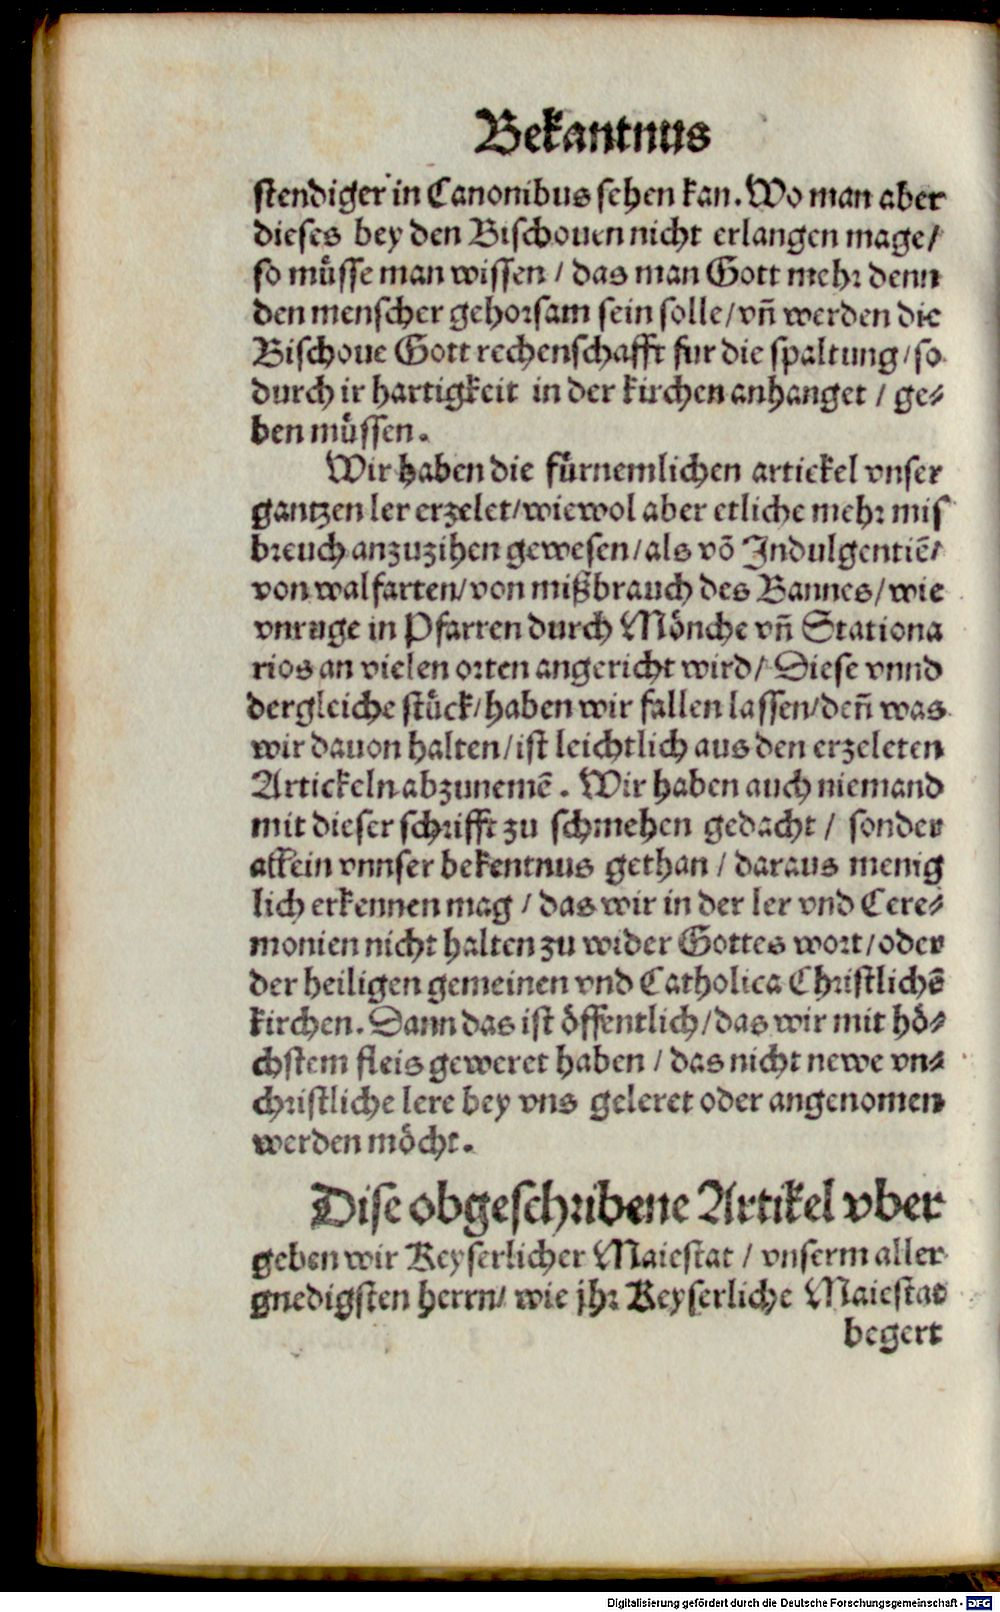 Bekantnus
stendiger in Canonibus sehen kan. Wo man aber
dieses bey den Bischouen nicht erlangen mage/
so müsse man wissen / das man Gott mehr denn
den menscher gehorsam sein solle/ vn̄ werden die
Bischoue Gott rechenschafft fur die spaltung/ so
durch ir hartigkeit in der kirchen anhanget / ge⸗
ben müssen.
Wir haben die fürnemlichen artickel vnser
gantzen ler erzelet/ wiewol aber etliche mehr mis
breuch anzuzihen gewesen/ als võ Indulgentiẽ/
von walfarten/ von mißbrauch des Bannes/ wie
vnruge in Pfarren durch Mönche vn̄ Stationa
rios an vielen orten angericht wird/ Diese vnnd
dergleiche stück/ haben wir fallen lassen/ den̄ was
wir dauon halten/ ist leichtlich aus den erzeleten
Artickeln abzunemẽ. Wir haben auch niemand
mit dieser schrifft zu schmehen gedacht / sonder
allein vnnser bekentnus gethan / daraus menig
lich erkennen mag / das wir in der ler vnd Cere⸗
monien nicht halten zu wider Gottes wort/ oder
der heiligen gemeinen vnd Catholica Christlichẽ
kirchen. Dann das ist öffentlich/ das wir mit hö⸗
chstem fleis geweret haben / das nicht newe vn⸗
christliche lere bey vns geleret oder angenomen
werden möcht.
Dise obgeschribene Artikel vber
geben wir Keyserlicher Maiestat / vnserm aller
gnedigsten herrn/ wie jhr Keyserliche Maiestat
begert
Digitalisierung gefördert durch die Deutsche Forschungsgemeinschaft - DFG